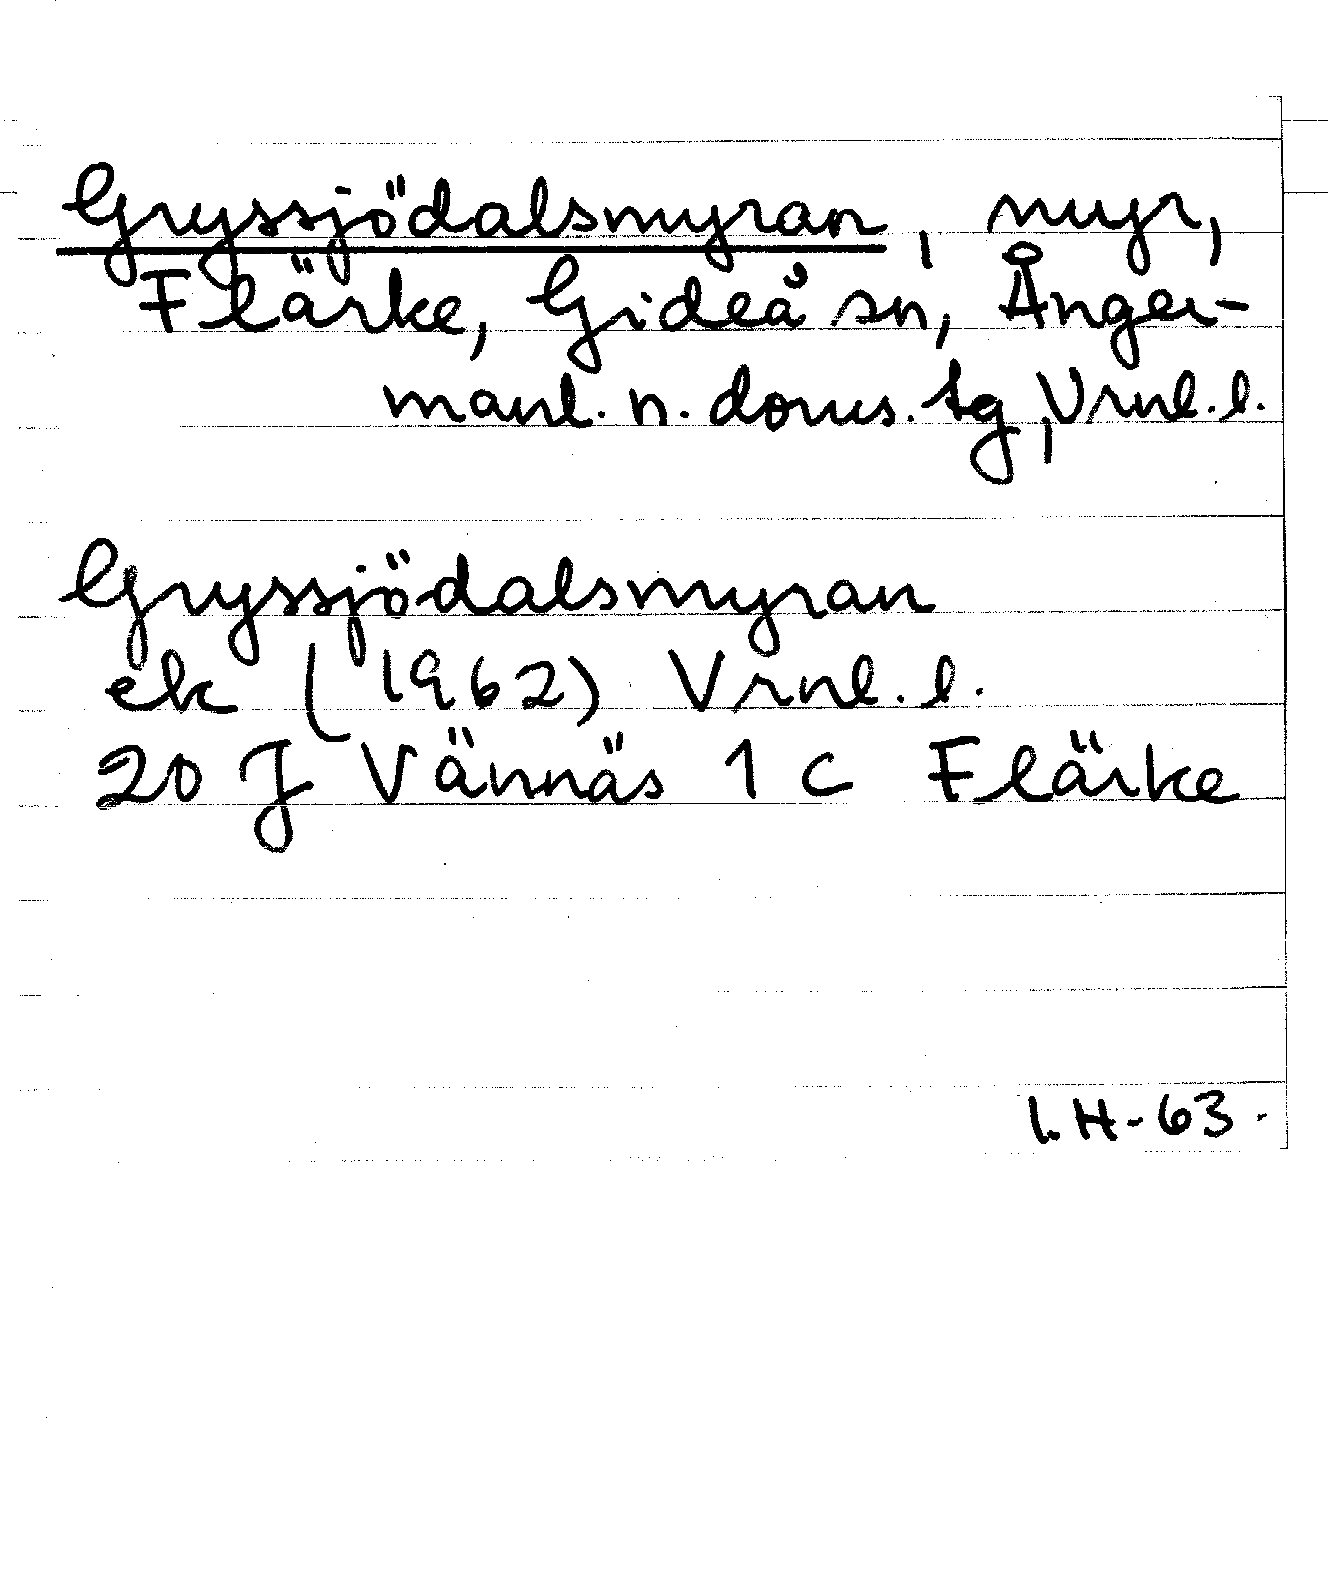 Gryssjödalsmyran, myr,
Flärke, Gideå sn, Ånger-
manl. n. doms. tg, Vrnl. l.
Gryssjödalsmyran
ek (1962) Vrnl. l.
20 J Vännäs 1 c Flärke
I. H-63.